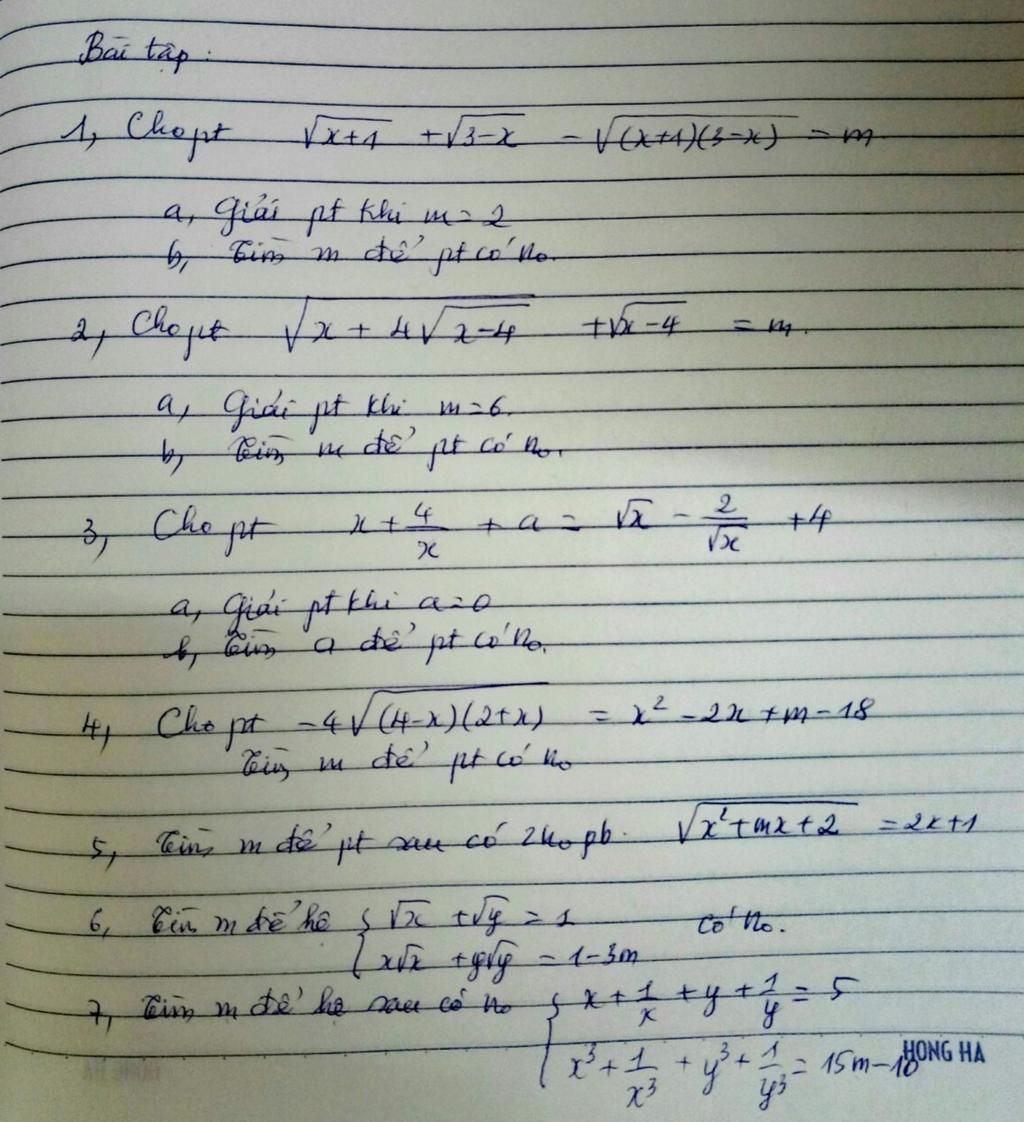 Bài tập:
1, Cho pt √(x+1) + √(3-x) - √((x+1)(3-x)) = m
a, Giải pt khi m = 2
b, Tìm m để pt có no.
2, Cho pt √(x + 4√(x-4)) + √(x-4) = m.
a, Giải pt khi m = 6.
b, Tìm m để pt có no.
3, Cho pt x + 4/x + a = √x - 2/√x + 4
a, Giải pt khi a = 0
b, Tìm a để pt có no.
4, Cho pt -4√((4-x)(2+x)) = x² - 2x + m - 18
Tìm m để pt có no
5, Tìm m để pt sau có 2no pb. √(x²+mx+2) = 2x+1
6, Tìm m để hệ { √x + √y = 1 có no.
x√x + y√y = 1-3m
7, Tìm m để hệ sau có no { x + 1/x + y + 1/y = 5
x³ + 1/x³ + y³ + 1/y³ = 15m - 10
HONG HA